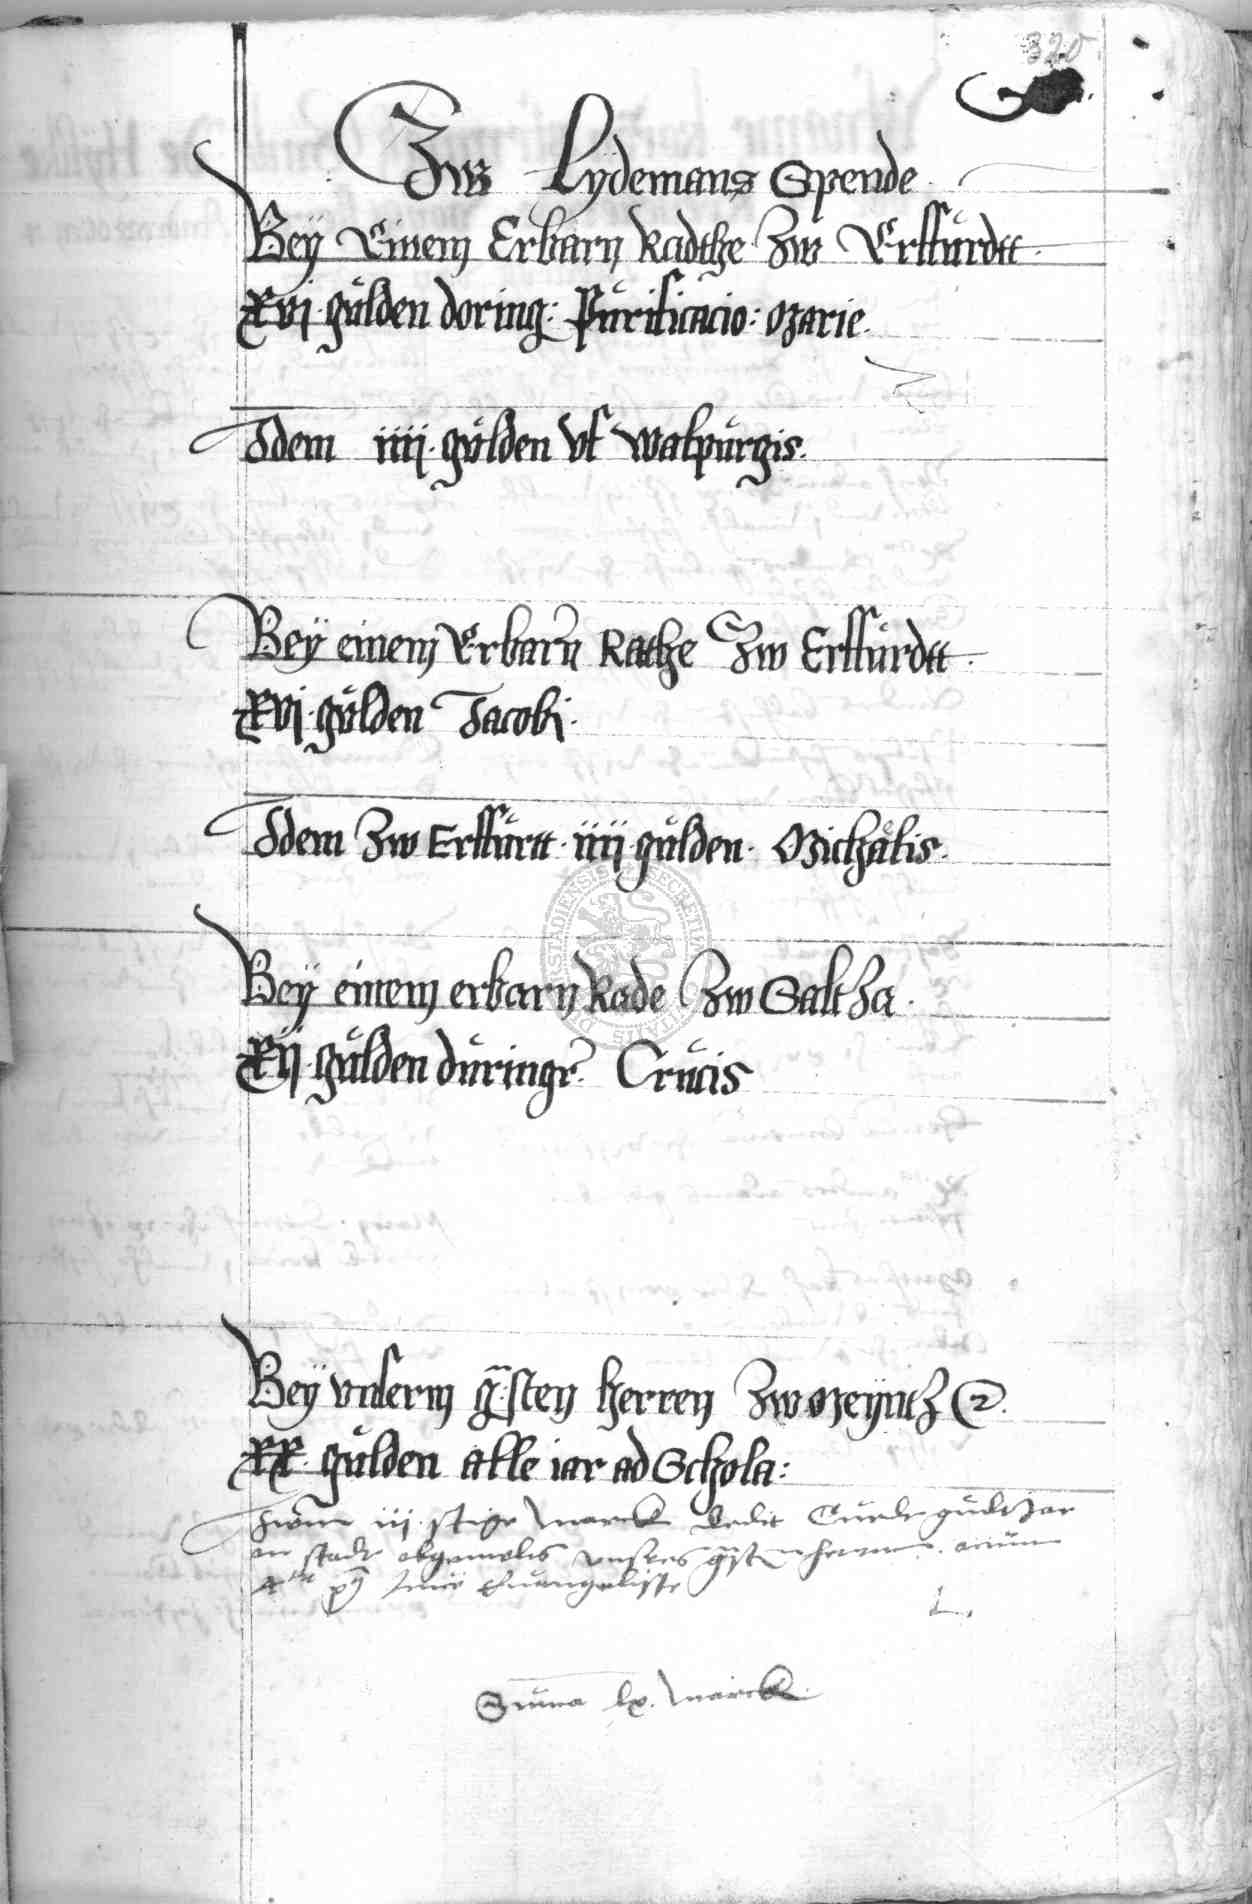 320
Zw Lydemans Spende
Bey Einem Erbarn Radthe Zw Erffurdtt
xvj gulden doring: Purificacio: Marie.
Idem iiij gulden vf walpurgis.
Bey einem Erbarn Rathe Zw Erffurdtt
xvj gulden Jacobi
Idem Zw Erffurtt iiij gulden Michaelis
Bey einem erbarn Rade Zw Saltza
xij gulden duringr. Crucis
Bey vnserm g: sten herren Zw Meyntz
xx gulden alle iar ad Schola:
iij marck dedit
an stadt vnsers
Euangeliste
Suma lx. marck